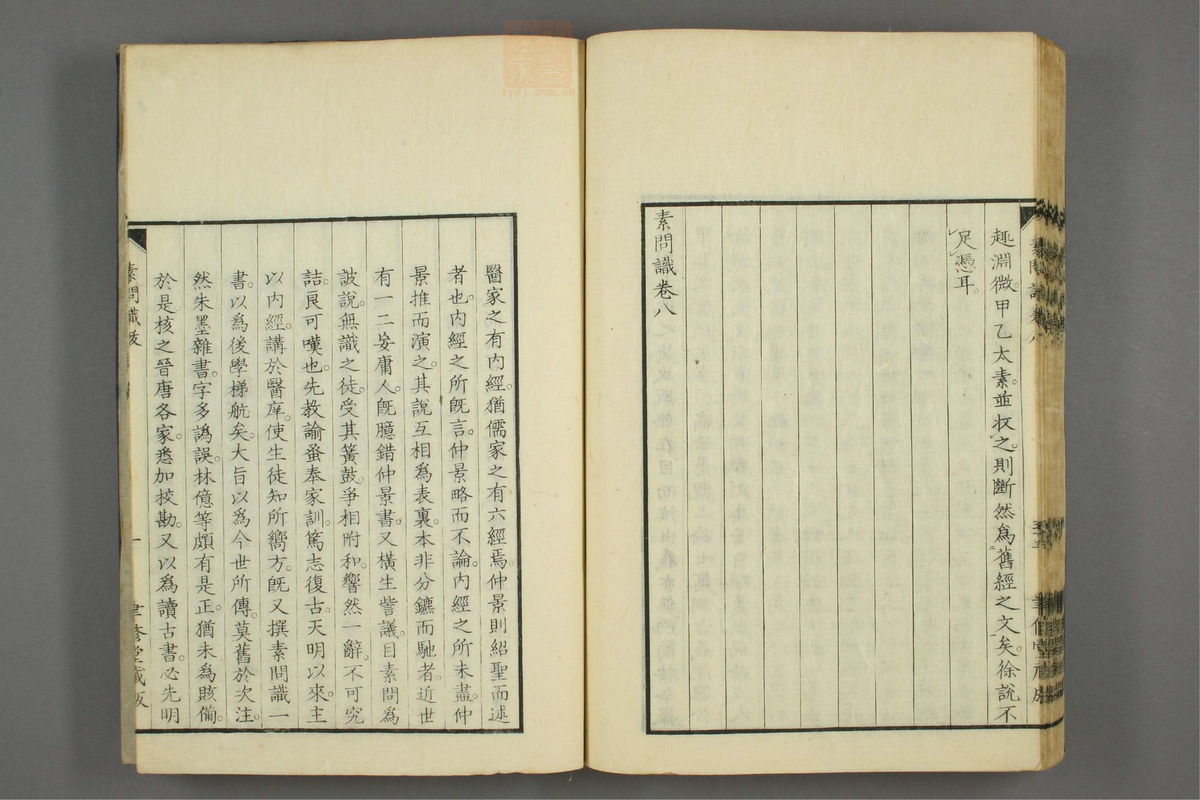 趣淵微。甲乙太素。並收之。則斷然爲舊經之文矣。徐説不
足憑耳。
素問識卷八
醫家之有内經。猶儒家之有六經焉。仲景則紹聖而述
者也。内經之所既言。仲景略而不論。内經之所未盡。仲
景推而演之。其説互相爲表裏。本非分鑣而馳者。近世
有一二妄庸人。既臆錯仲景書。又横生訾議。目素問爲
詖説。無識之徒。受其簧鼓。爭相附和。響然一辭。不可究
詰。良可嘆也。先教諭蚤奉家訓。篤志復古。天明以來。主
以内經。講於醫庠。使生徒知所嚮方。既又撰素問識一
書。以爲後學梯航矣。大旨以爲今世所傳。莫舊於次注。
然朱墨雜書。字多譌誤。林億等頗有是正。猶未爲賅備。
於是核之晉唐各家。悉加挍勘。又以爲讀古書。必先明
素問識跋
一
聿修堂藏版